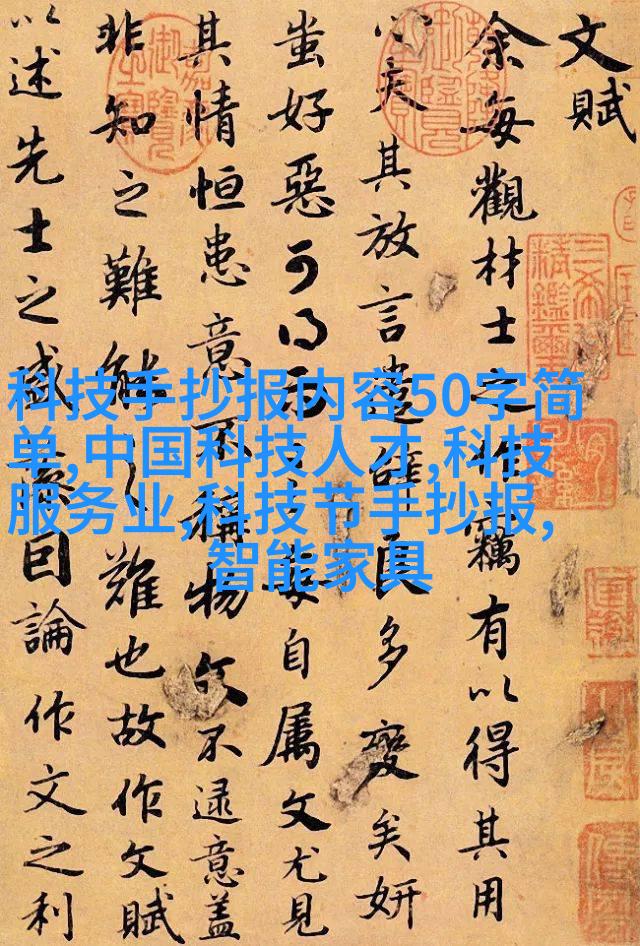 文賦
余每觀材士之作竊有以得其用
心夫其放言遣辭良多變矣妍
蚩好惡可得而言每自属文尤見
其情恒患意不稱物文不逮意盖
非知之難能之難也故作文賦
以述先士之盛藻因論作文之利
科技手抄报内容50字简
单,中国科技人才,科技
服务业,科技节手抄报,
智能家具